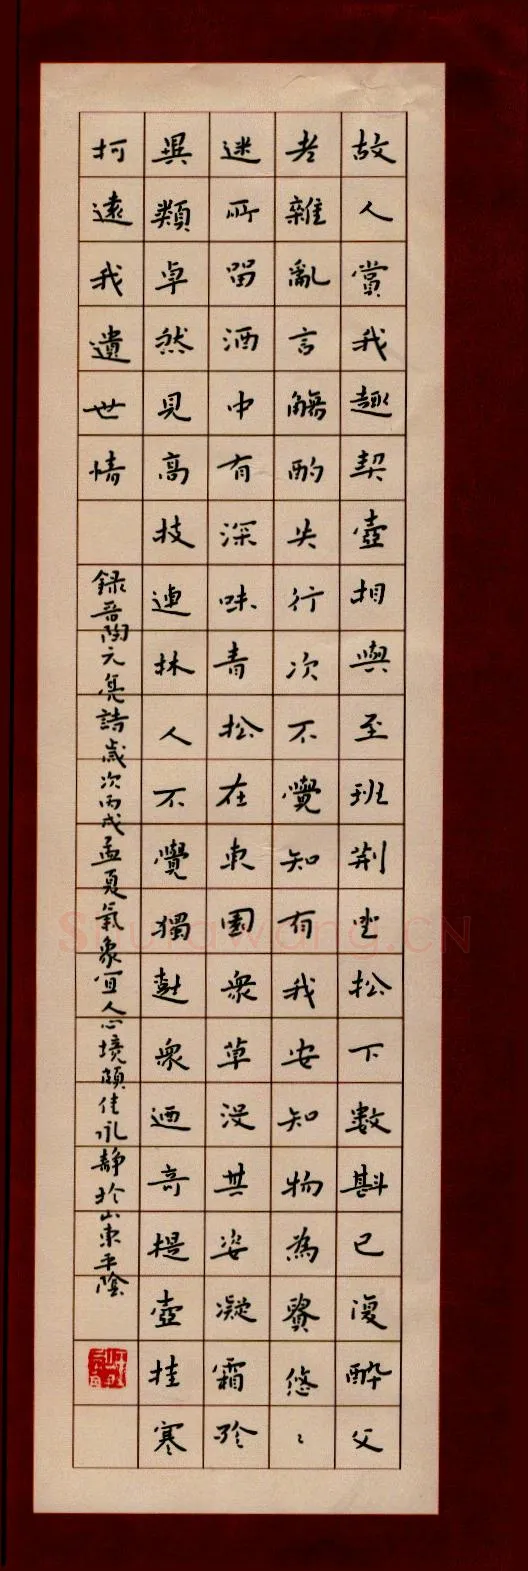 故人賞我趣契壺相與至班荆坐松下數斟已復醉父
老雜亂言觴酌失行次不覺知有我安知物為貴悠〻
迷所留酒中有深味青松在東園衆草沒其姿凝霜殄
異類卓然見高枝連林人不覺獨樹衆迺奇提壺挂寒
柯遠我遺世情
録晉陶元亮詩歲次丙戌孟夏氣象宜人心境頗佳永静於山東平陰
Shufawang.CN